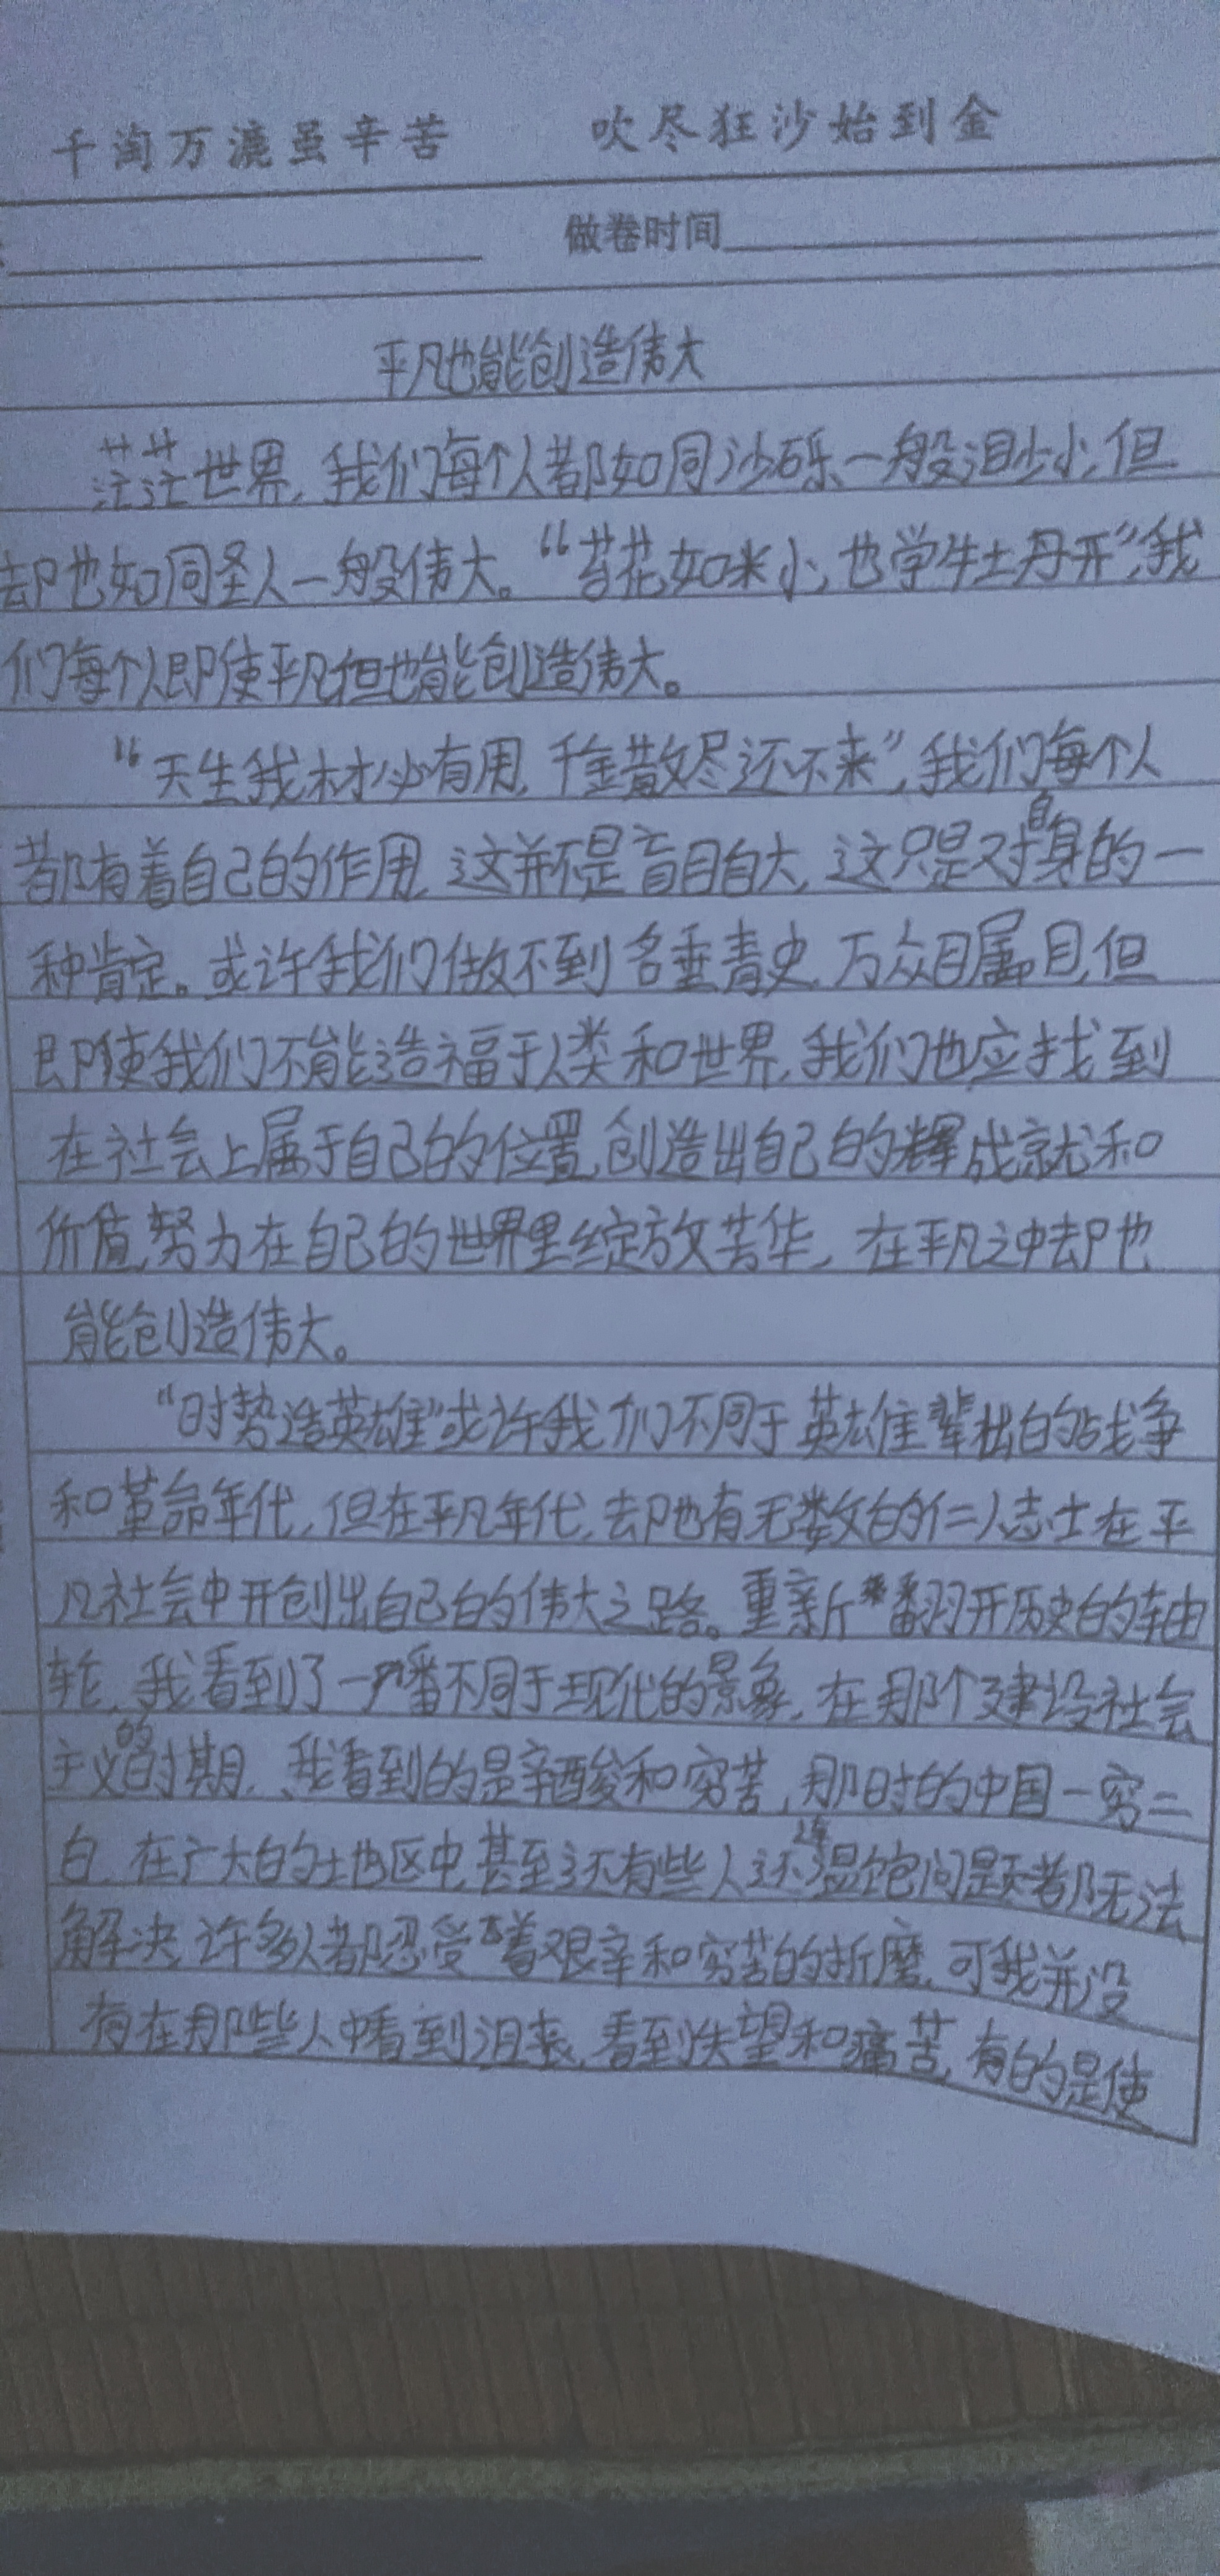 千淘万漉虽辛苦 吹尽狂沙始到金
做卷时间
平凡也能创造伟大
茫茫世界,我们每个人都如同沙砾一般渺小,但
却也如同圣人一般伟大。“苔花如米小,也学牡丹开”,我
们每个人即使平凡但也能创造伟大。
“天生我材必有用,千金散尽还不来”,我们每个人
都有着自己的作用,这并不是盲目自大,这只是对自身的一
种肯定。或许我们做不到名垂青史,万众瞩目,但
即使我们不能造福于人类和世界,我们也应找到
在社会上属于自己的位置,创造出自己的辉成就和
价值,努力在自己的世界里绽放芳华,在平凡之中却也
能创造伟大。
“时势造英雄”或许我们不同于英雄辈出的战争
和革命年代,但在平凡年代,却也有无数的仁人志士在平
凡社会中开创出自己的伟大之路。重新翻开历史的轴
轮,我看到了一番不同于现代的景象,在那个建设社会
主义的时期,我看到的是辛酸和穷苦,那时的中国一穷二
白,在广大的土地区中,甚至还有些人还连温饱问题都无法
解决,许多人都忍受着艰辛和穷苦的折磨,可我并没
有在那些人中看到沮丧,看到失望和痛苦,有的是使